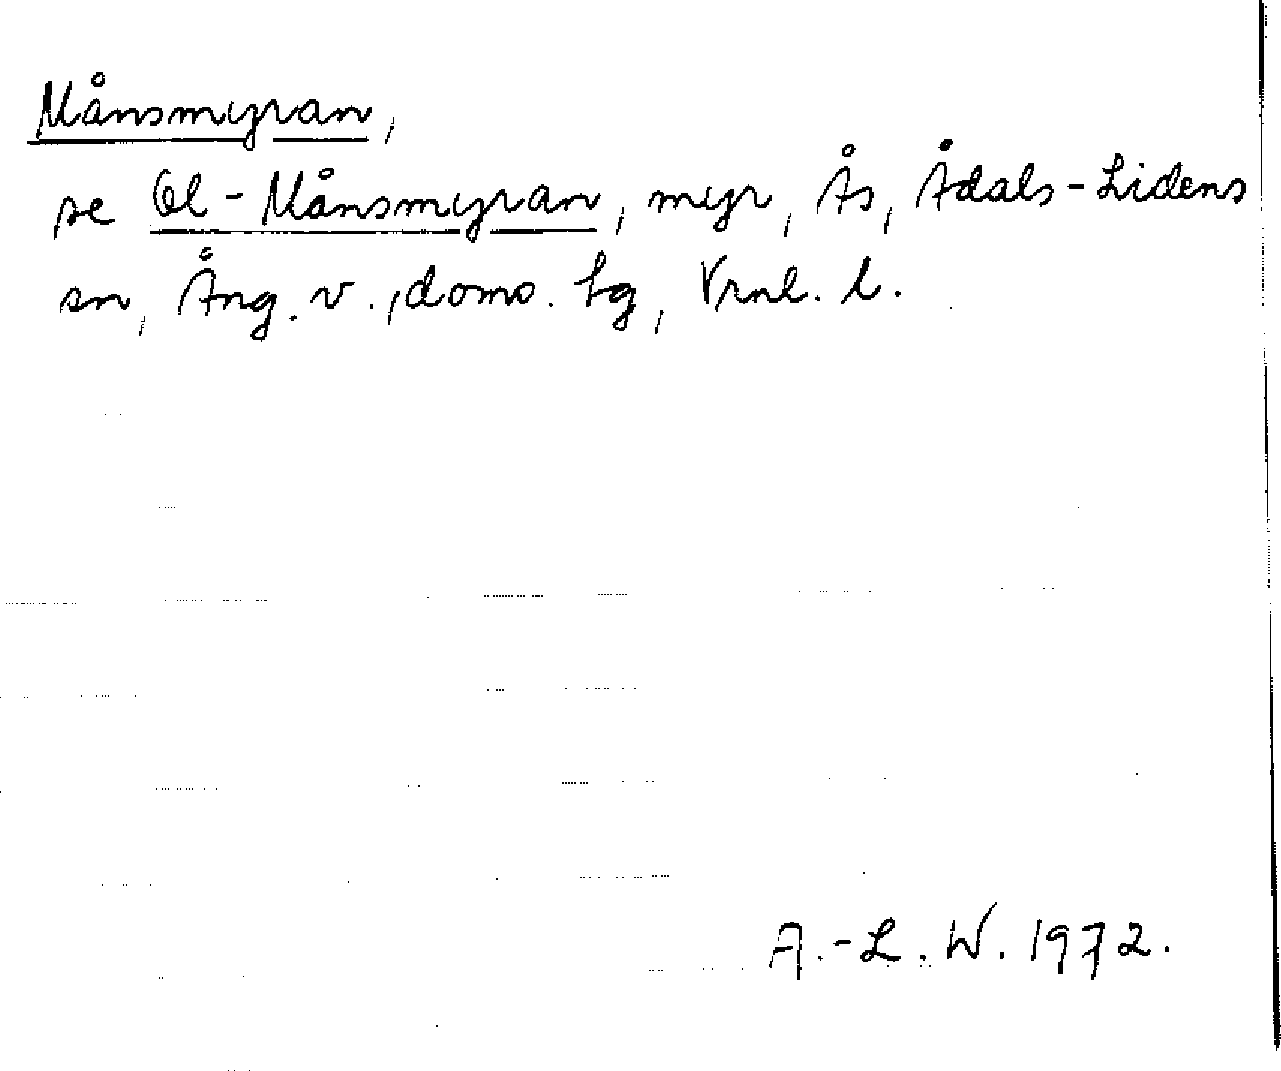 Månsmyran,
se Ol-Månsmyran, myr, Ås, Ådals-Lidens
sn, Ång. v., doms. hg, Vrnl. l.
A.-L. W. 1972.